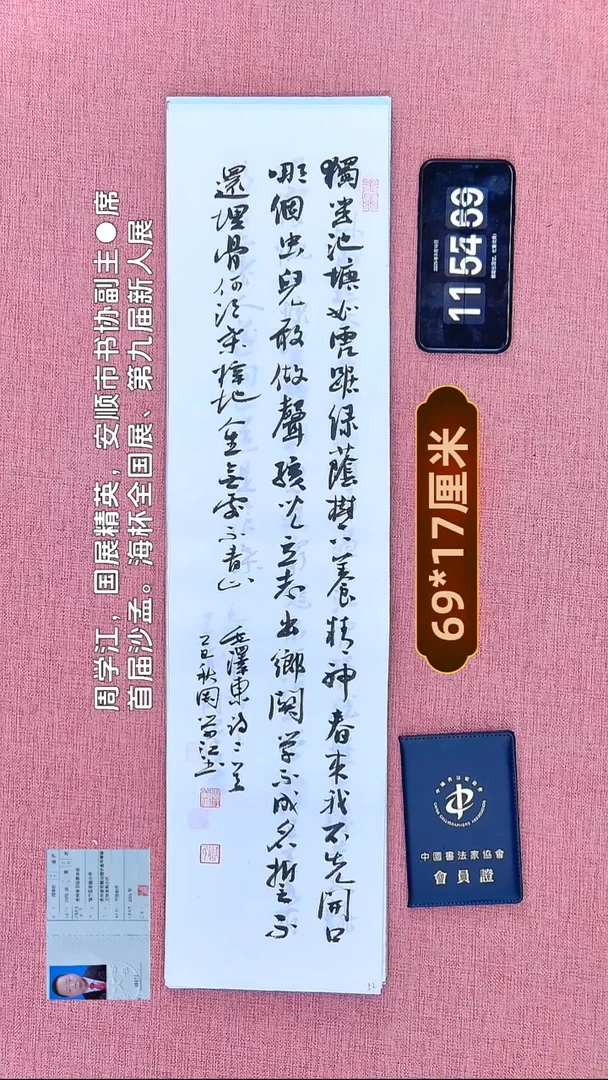 獨坐池塘如虎踞綠蔭樹下養精神春來我不先開口
哪個虫兒敢做聲孩兒立志出鄉關學不成名誓不
還埋骨何須桑梓地人生無處不青山
毛澤東詩二首
乙巳秋周學江書
周学江，国展精英，安顺市书协副主●席
首届沙孟。海杯全国展、第九届新人展
11 54
69*17厘米
CHINA CALLIGRAPHERS ASSOCIATION
中國書法家協會
會員證